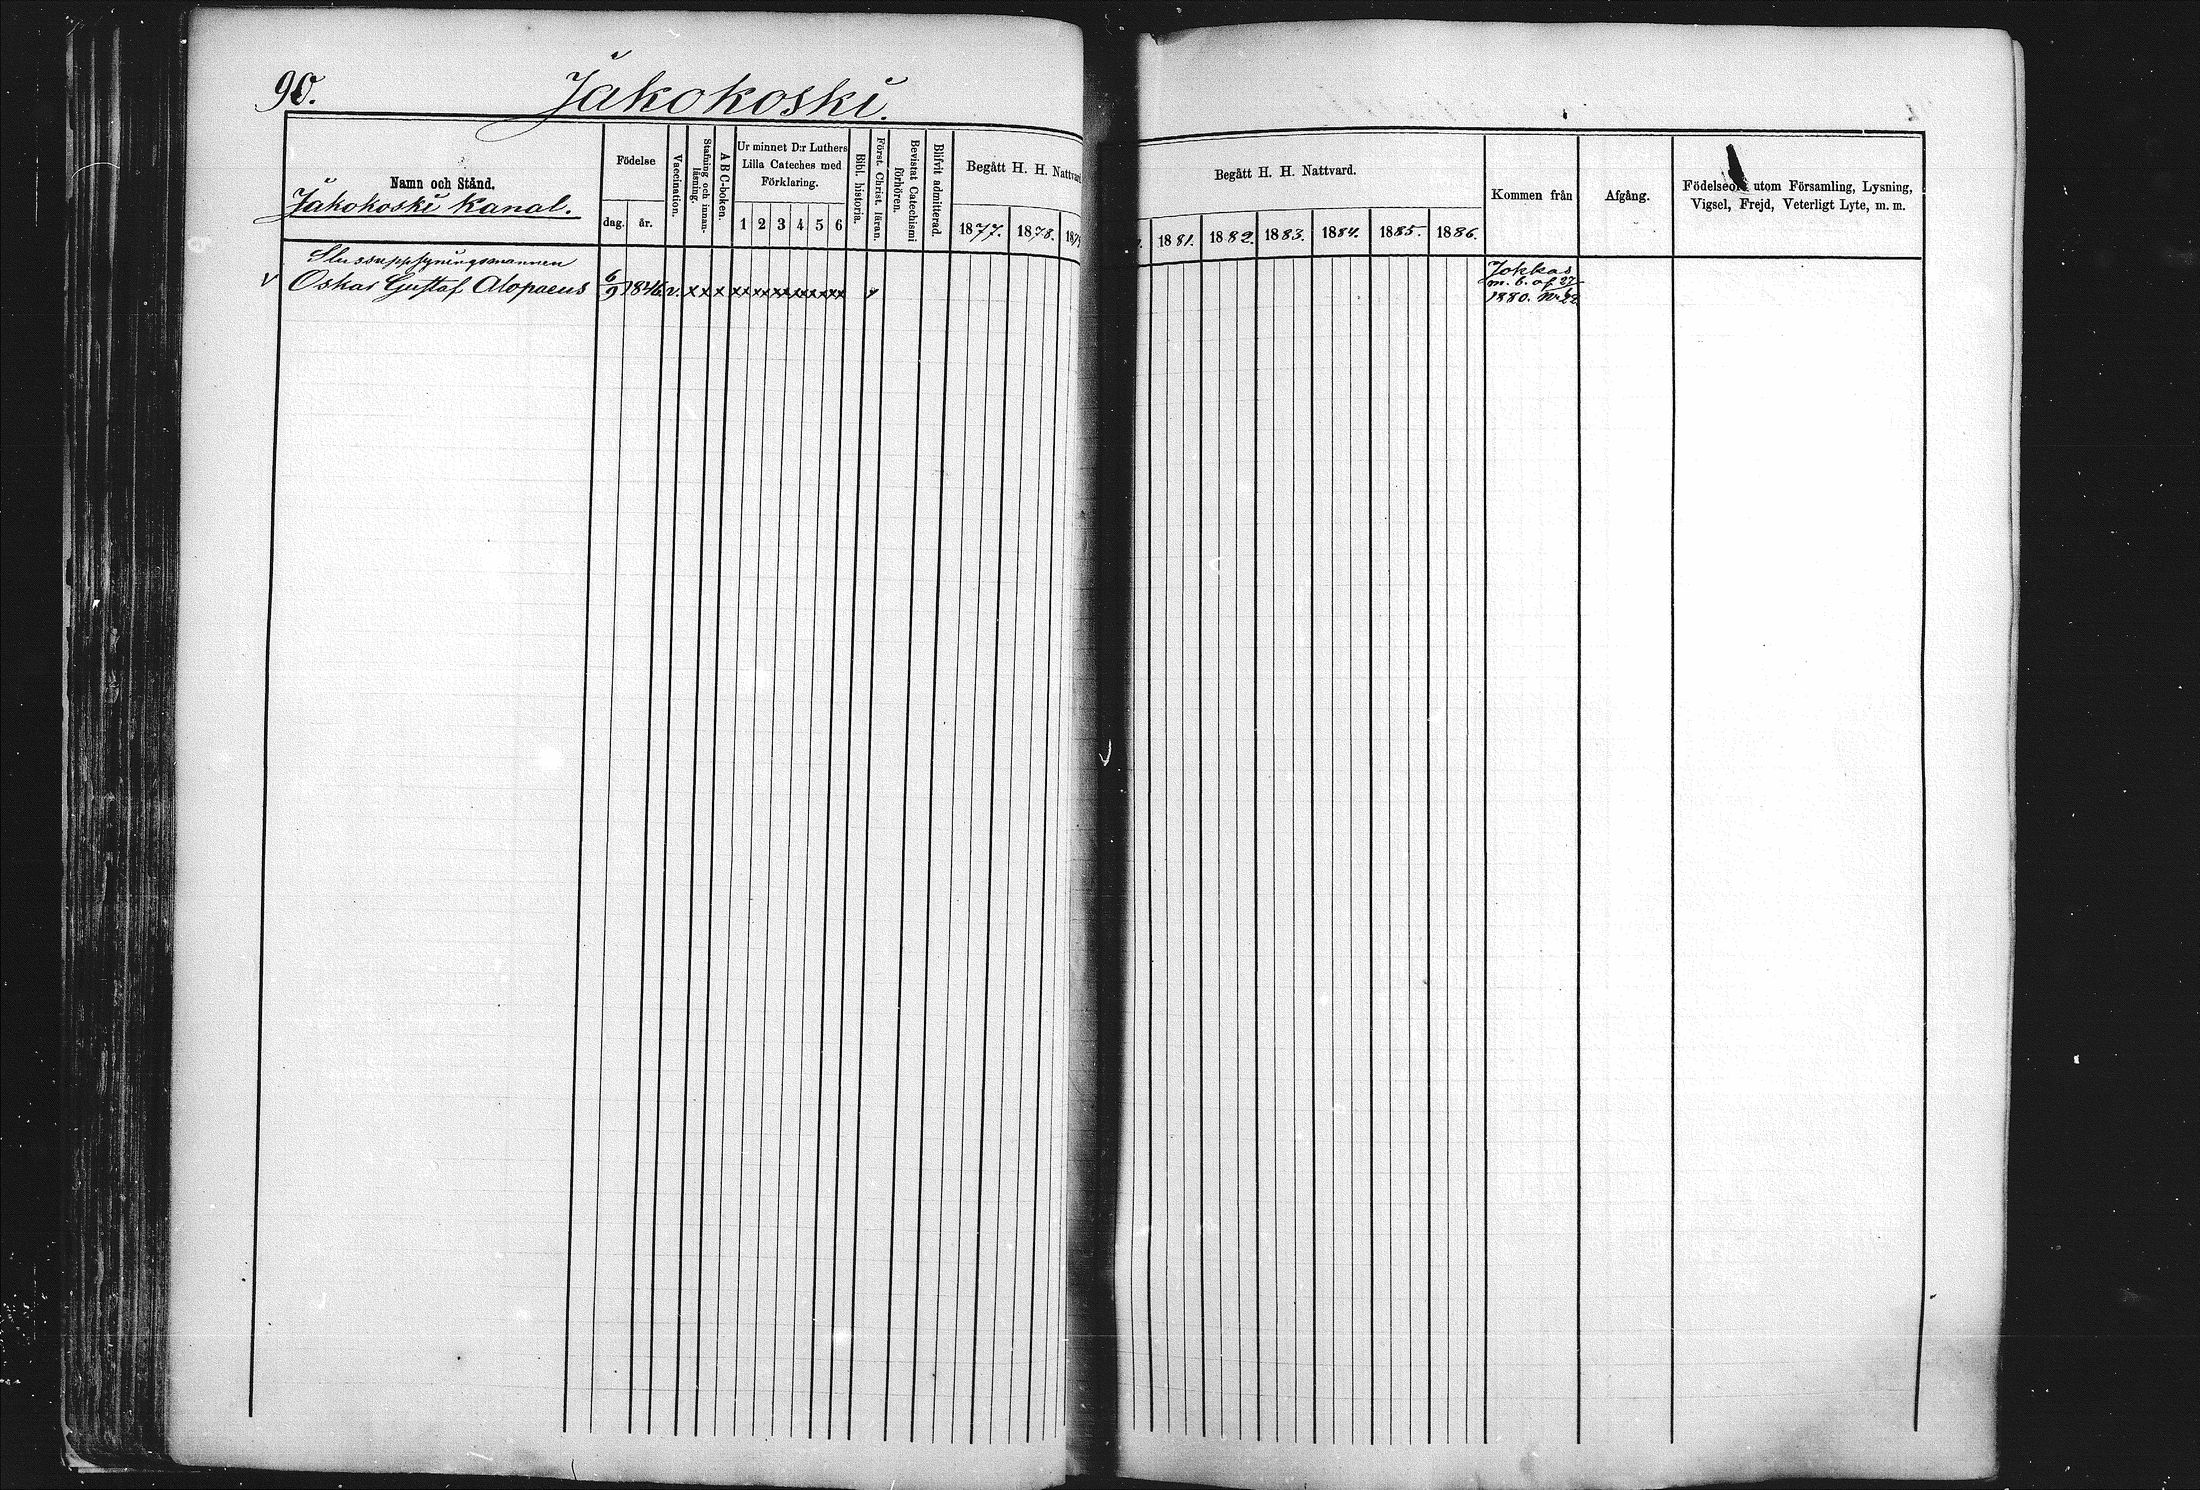 90.
Jakokoski.
Namn och Stånd.
Jakokoski Kanal.
Födelse
dag.
år.
Vaccination.
Stafning och innan-
läsning.
A B C-boken.
Ur minnet D:r Luthers
Lilla Cateches med
Förklaring.
1 2 3 4 5 6
Bibl. historia.
Först. Christ. läran.
Bevistat Catechismi
förhören.
Blifvit admitterad.
Begått H. H. Nattvard
1877. 1878. 187
Begått H. H. Nattvard.
1881. 1882. 1883. 1884. 1885. 1886.
Kommen från
Afgång.
Födelseort utom Församling, Lysning,
Vigsel, Frejd, Veterligt Lyte, m. m.
Slussuppsyningsmannen
v Oskar Gustaf Alopaeus 6/9 1846 v. x x x xx xx xx xx xx xx x
Jokkas
m. b. af
1880. No 22